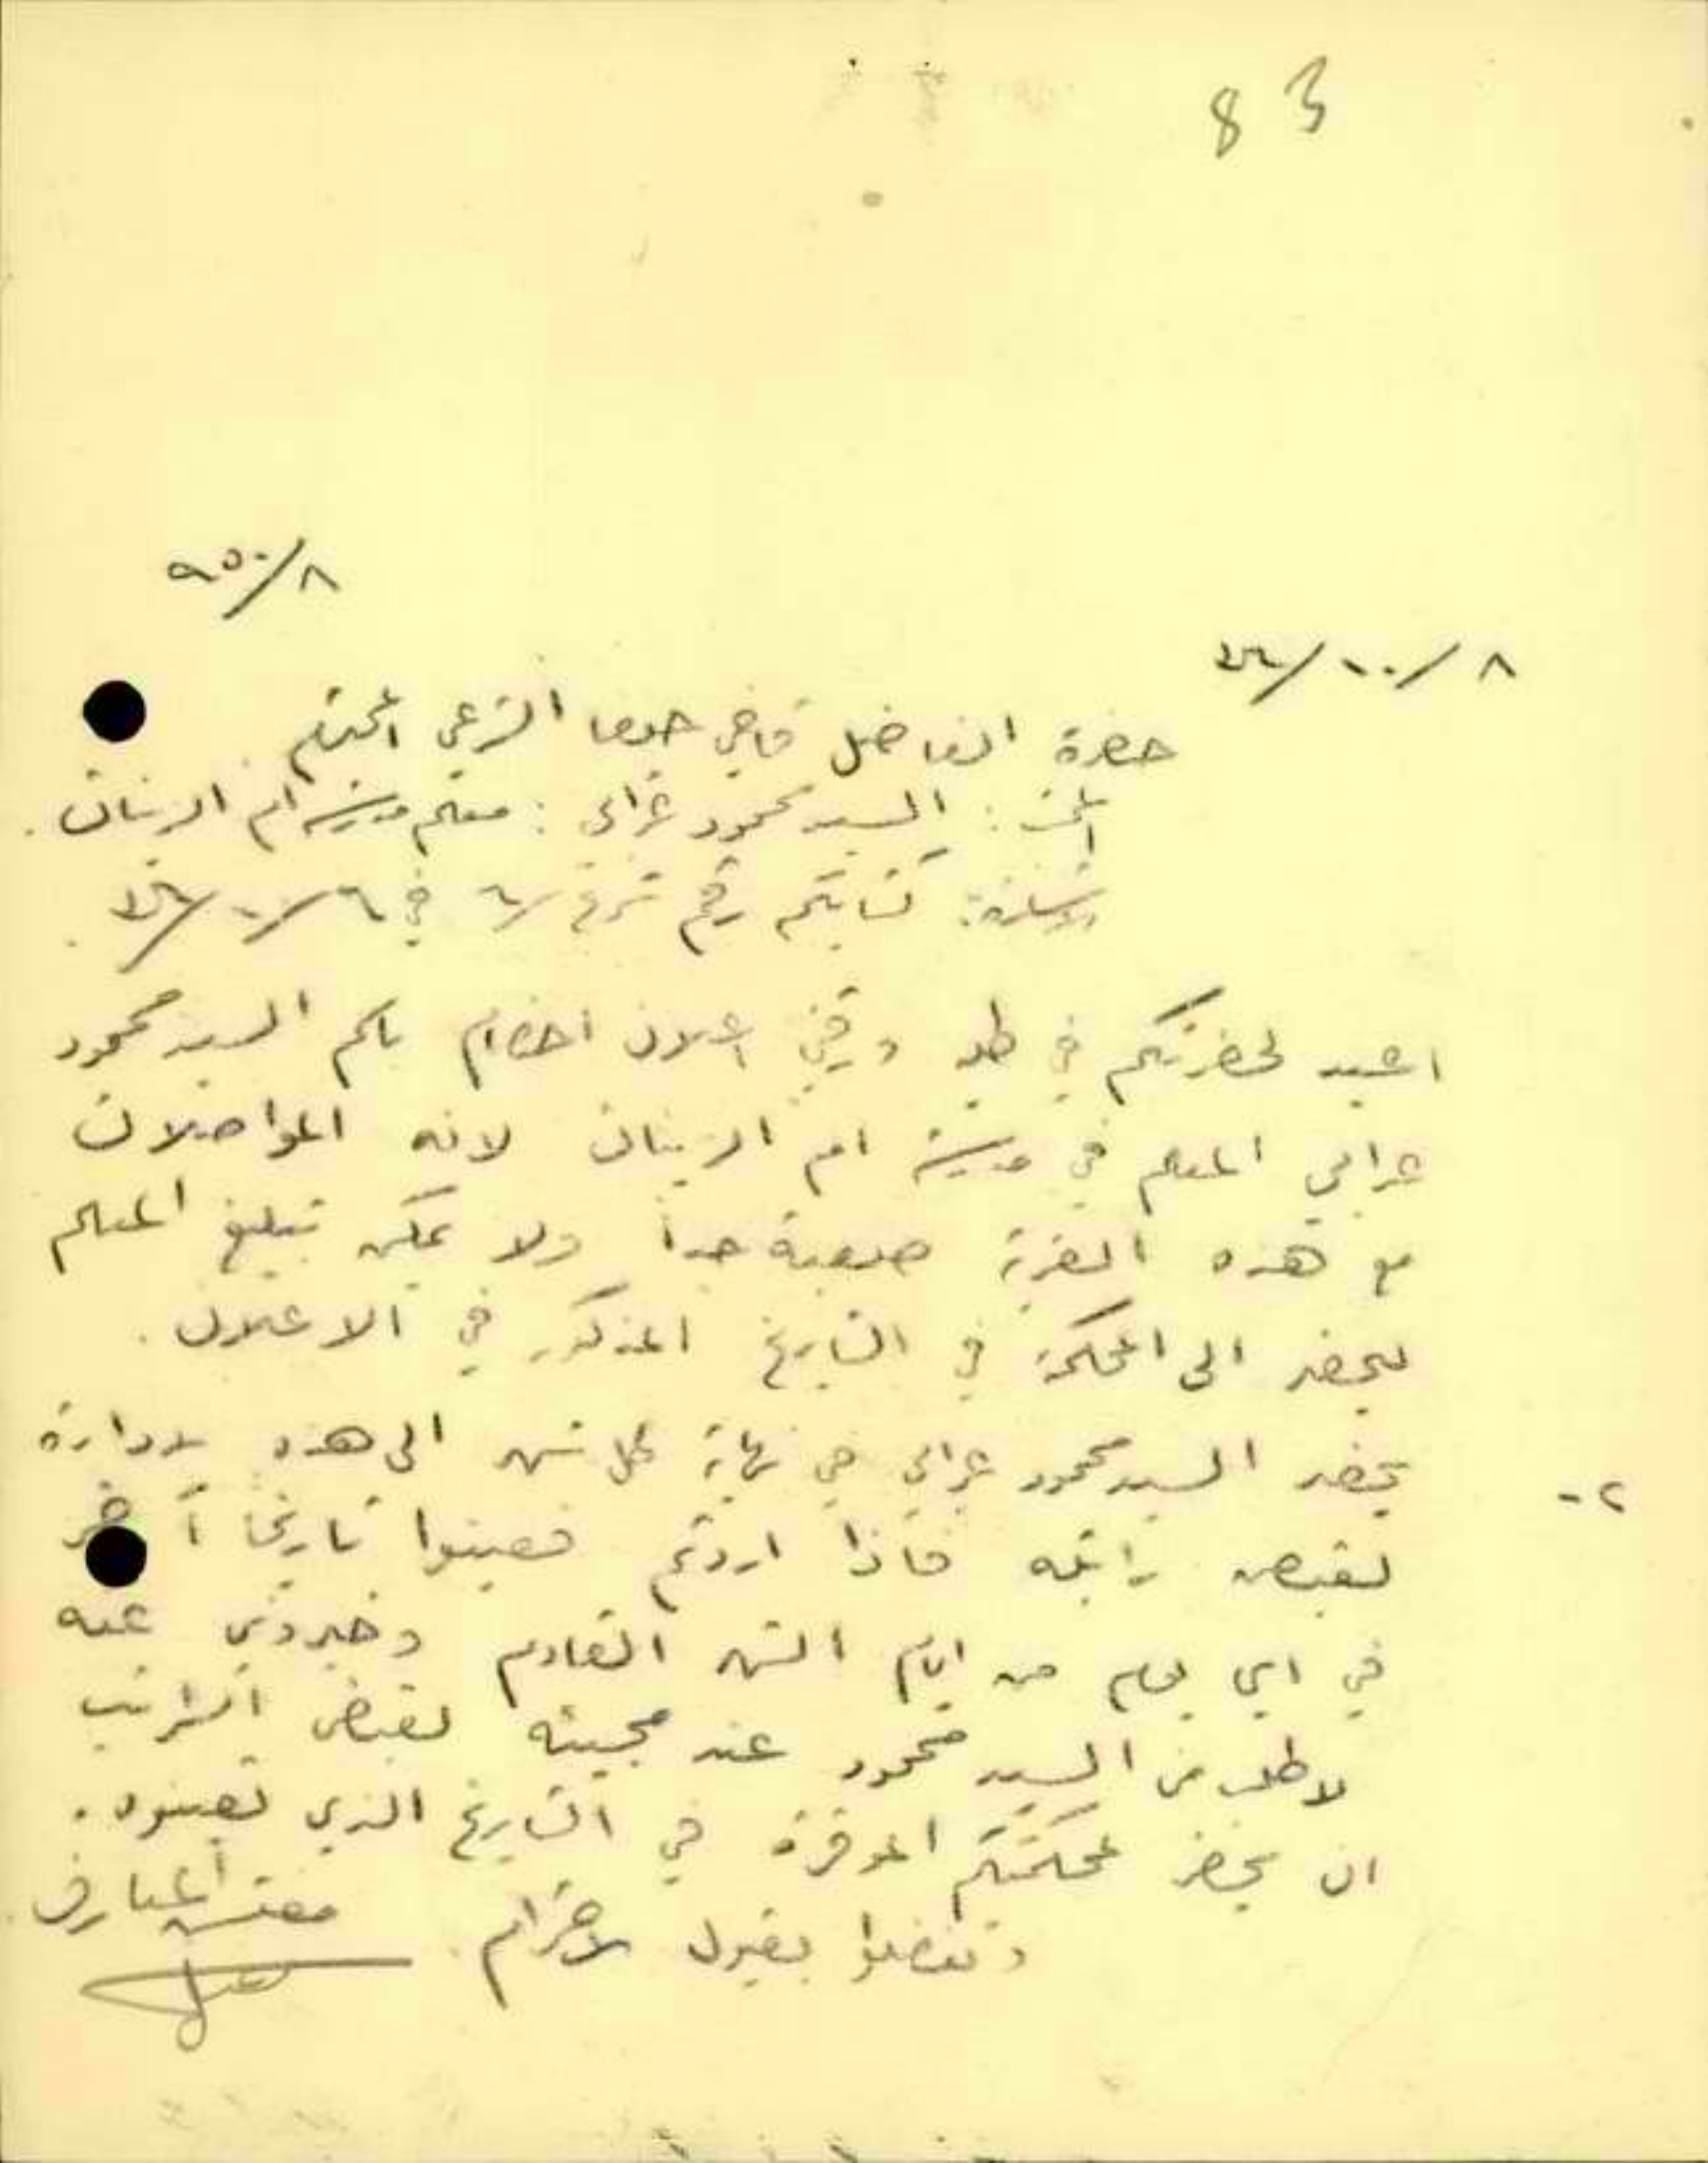 83
٨/٩٥٠
٨/١٠/٤٦
حضرة الفاضل قاضي حيفا الشرعي المحترم
البحث: السيد محمود عرابي: معلم مدرسة ام الزينات.
الاشارة: كتابكم رقم شرع/٦ في ٦/١٠/٤٦.
اعيد لحضرتكم في طيه ورقتي اعلان احضار باسم السيد محمود
عرابي المعلم في مدرسة ام الزينات لانه المواصلات
مع هذه القرية صعبة جداً ولا يمكن تبليغ المعلم
ليحضر الى المحكمة في التاريخ المذكور في الاعلان.
٢- يحضر السيد محمود عرابي في نهاية كل شهر الى هذه الادارة
لقبض راتبه فاذا اردتم فعينوا تاريخاً آخر
في اي يوم من ايام الشهر القادم وخبروني عنه
لاطلب من السيد محمود عند مجيئه لقبض الراتب
ان يحضر لمحكمتكم الموقرة في التاريخ الذي تعينوه.
وتفضلوا بقبول الاحترام
مفتش المعارف